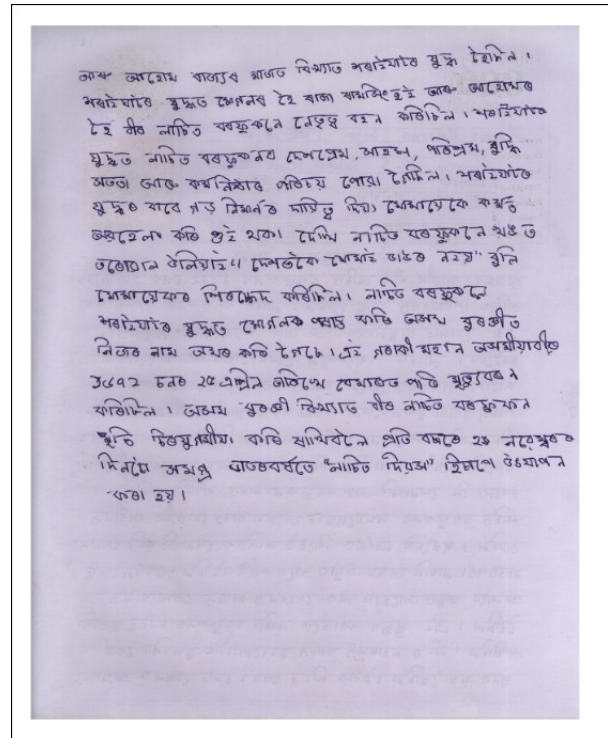 আৰু আহোম ৰাজ্যৰ মাজত বিখ্যাত শৰাইঘাটৰ যুদ্ধ হৈছিল।
শৰাইঘাটৰ যুদ্ধত মোগলৰ হৈ ৰাজা ৰামসিংহই আৰু আহোমৰ
হৈ বীৰ লাচিত বৰফুকনে নেতৃত্ব বহন কৰিছিল। শৰাইঘাটৰ
যুদ্ধত লাচিত বৰফুকনৰ দেশপ্ৰেম, সাহস, পৰিশ্ৰম, বুদ্ধি
সততা আৰু কৰ্মনিষ্ঠাৰ পৰিচয় পোৱা গৈছিল। শৰাইঘাটৰ
যুদ্ধৰ বাবে গড় নিৰ্মানৰ দায়িত্ব দিয়া মোমায়েকে কামত
অৱহেলা কৰি শুই থকা দেখি লাচিত বৰফুকনে খঙত
তৰোৱাল উলিয়াই "দেশতকৈ মোমাই ডাঙৰ নহয়" বুলি
মোমায়েকৰ শিৰচ্ছেদ কৰিছিল। লাচিত বৰফুকনে
শৰাইঘাটৰ যুদ্ধত মোগলক পৰাস্ত কৰি অসম বুৰঞ্জীত
নিজৰ নাম অমৰ কৰি গৈছে। এই গৰাকী মহান অসমীয়াবীৰে
১৬৭২ চনৰ ২৫ এপ্ৰিল তাৰিখে বেমাৰত পৰি মৃত্যুবৰন
কৰিছিল। অসম বুৰঞ্জী বিখ্যাত বীৰ লাচিত বৰফুকনৰ
স্মৃতি চিৰযুগমীয়া কৰি ৰাখিবলৈ প্ৰতি বছৰে ২৪ নৱেম্বৰৰ
দিনটো সমগ্ৰ ভাৰতবৰ্ষতে "লাচিত দিৱস" হিচাপে উদযাপন
কৰা হয়।